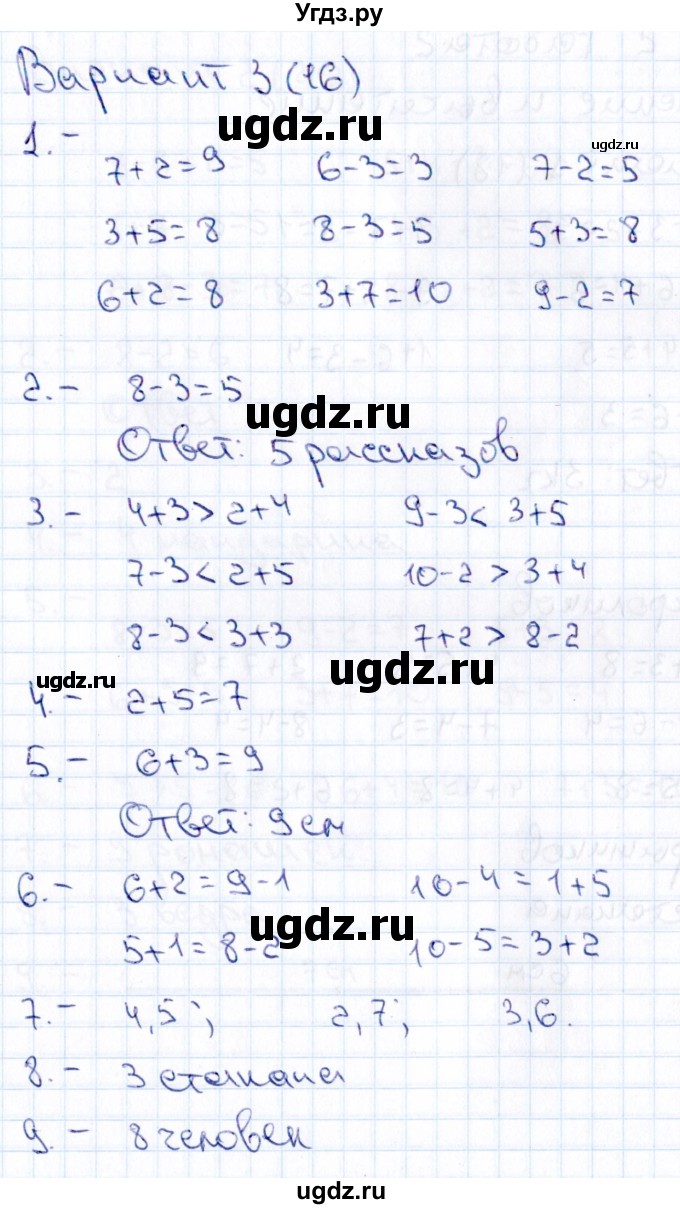 Угдз.ру
Вариант 3 (16)
ugdz.ru
ugdz.ru
1.-
7+2=9 6-3=3 7-2=5
3+5=8 8-3=5 5+3=8
6+2=8 3+7=10 9-2=7
2.- 8-3=5
ugdz.ru
Ответ: 5 рассказов
3.- 4+3>2+4 9-3<3+5
7-3<2+5 10-2>3+4
8-3<3+3 7+2>8-2
ugdz.ru
ugdz.ru
4.- 2+5=7
5.- 6+3=9
Ответ: 9 см
6.- 6+2=9-1 10-4=1+5
ugdz.ru
5+1=8-2 10-5=3+2
7.- 4,5; 2,7; 3,6.
8.- 3 стакана
9.- 8 человек
ugdz.ru